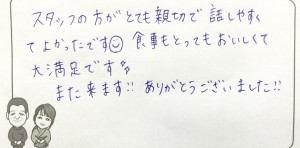 スタッフの方がとても親切で話しやすく
てよかったです☺ 食事もとってもおいしくて
大満足です
また来ます!! ありがとうございました!!